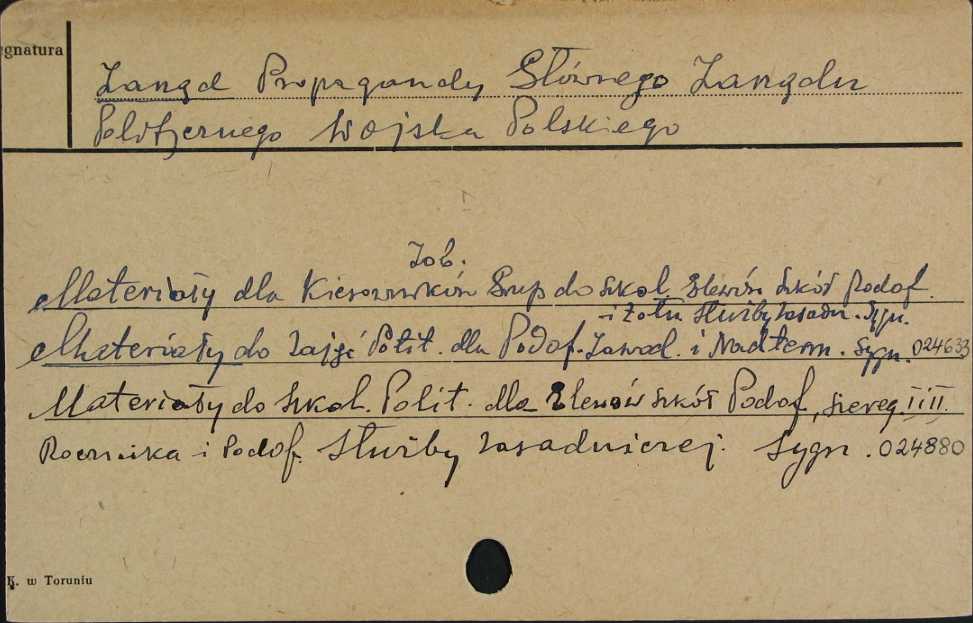 gnatura
Zarząd Propagandy Głównego Zarządu
Politycznego Wojska Polskiego
Zob.
Materiały dla Kierowników Grup do szkol. Elewów Szkół Podof.
i Żołn. Służby Zasadn. Sygn.
Materiały do zajęć Polit. dla Podof. Zawod. i Nadterm. Sygn. 024633
Materiały do szkol. Polit. dla Elewów Szkół Podof, szereg. I i II.
Rocznika i Podof. Służby zasadniczej. Sygn. 024880
K. w Toruniu